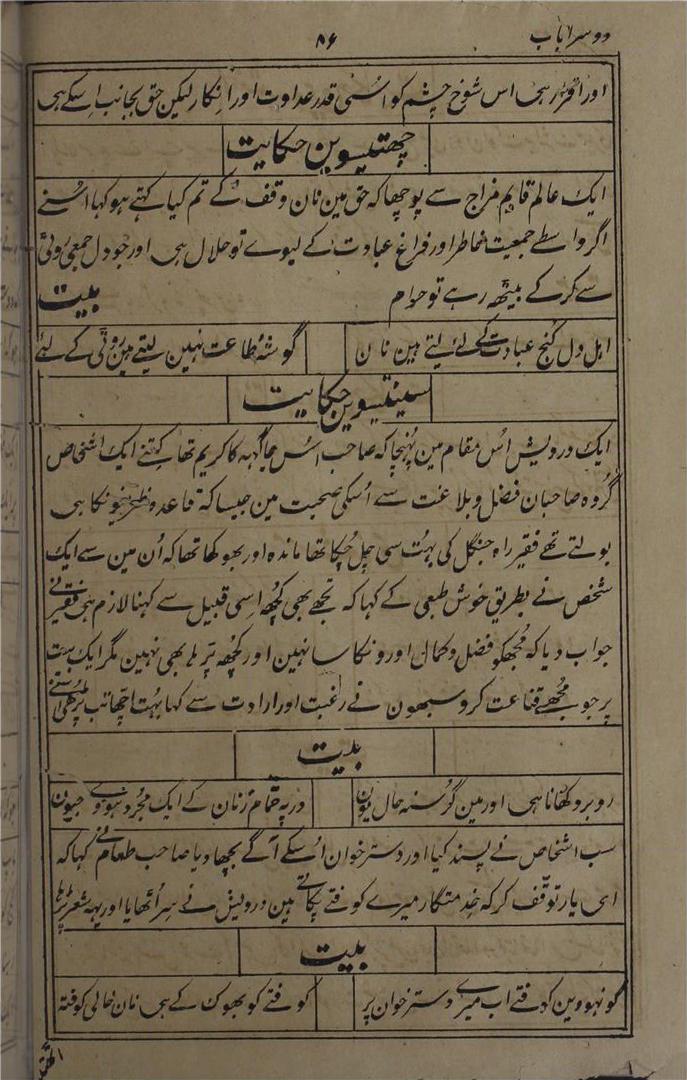 دوسرا باب ۸۶
اور اقرار ہی اس شوخ چشم کو اسی قدر عداوت اور انکار لیکن حق بجانب اسکے ہی
چھتیسوین حکایت
ایک عالم قایم مزاج سے پوچھا کہ حق مین نان وقف کے تم کیا کہتے ہو کہا اسنے
اگر واسطے جمعیت خاطر اور فراغ عبادت کے لیوے تو حلال ہی اور جو دل جمعی روٹی
سے کرکے بیٹھ رہے تو حرام بیت
اہل دل گنج عبادت کے لئے لیتے ہین نان گوشۂ طاعت نہین لیتے ہین روٹی کے لئے
سینتیسوین حکایت
ایک درویش اُس مقام مین پُہنچا کہ صاحب اُس جاگہہ کا کریم تھا کتنے ایک اشخاص
گروہ صاحبان فضل و بلاغت سے اُسکی صحبت مین جیسا کہ قاعدہ ظریفونکا ہی
بولتے تھے فقیر راہ جنگل کی بہت سی چل چکا تھا ماندہ اور بھوکھا تھا کہ اُن مین سے ایک
شخص نے بطریق خوش طبعی کے کہا کہ تجھے بھی کچُھ اسی قبیل سے کہنا لازم ہی فقیر نے
جواب دیا کہ مُجھکو فضل و کمال اورونکا سا نہین اور کچُھ پڑھا بھی نہین مگر ایک بیت
پر جو مُجھسے قناعت کرو سبھون نے رغبت اور ارادت سے کہا بہت اچھا تب پڑھی اُسنے
بیت
روبرو کھانا ہی اور مین گرسنہ حال یون در پہ حمّام زنان کے ایک مجرد ہووے جیون
سب اشخاص نے پسند کیا اور دسترخوان اُسکے آگے بچھا دیا صاحب طعام نے کہا کہ
ای یار توقف کر کہ خدمتگار میرے کوفتے پکاتے ہین درویش نے سر اُٹھایا اور یہہ شعر پڑھا
بیت
گو نہووین کوفتے اب میرے دسترخوان پر کوفتے کو بھوک کے ہی نان خالی کوفتہ